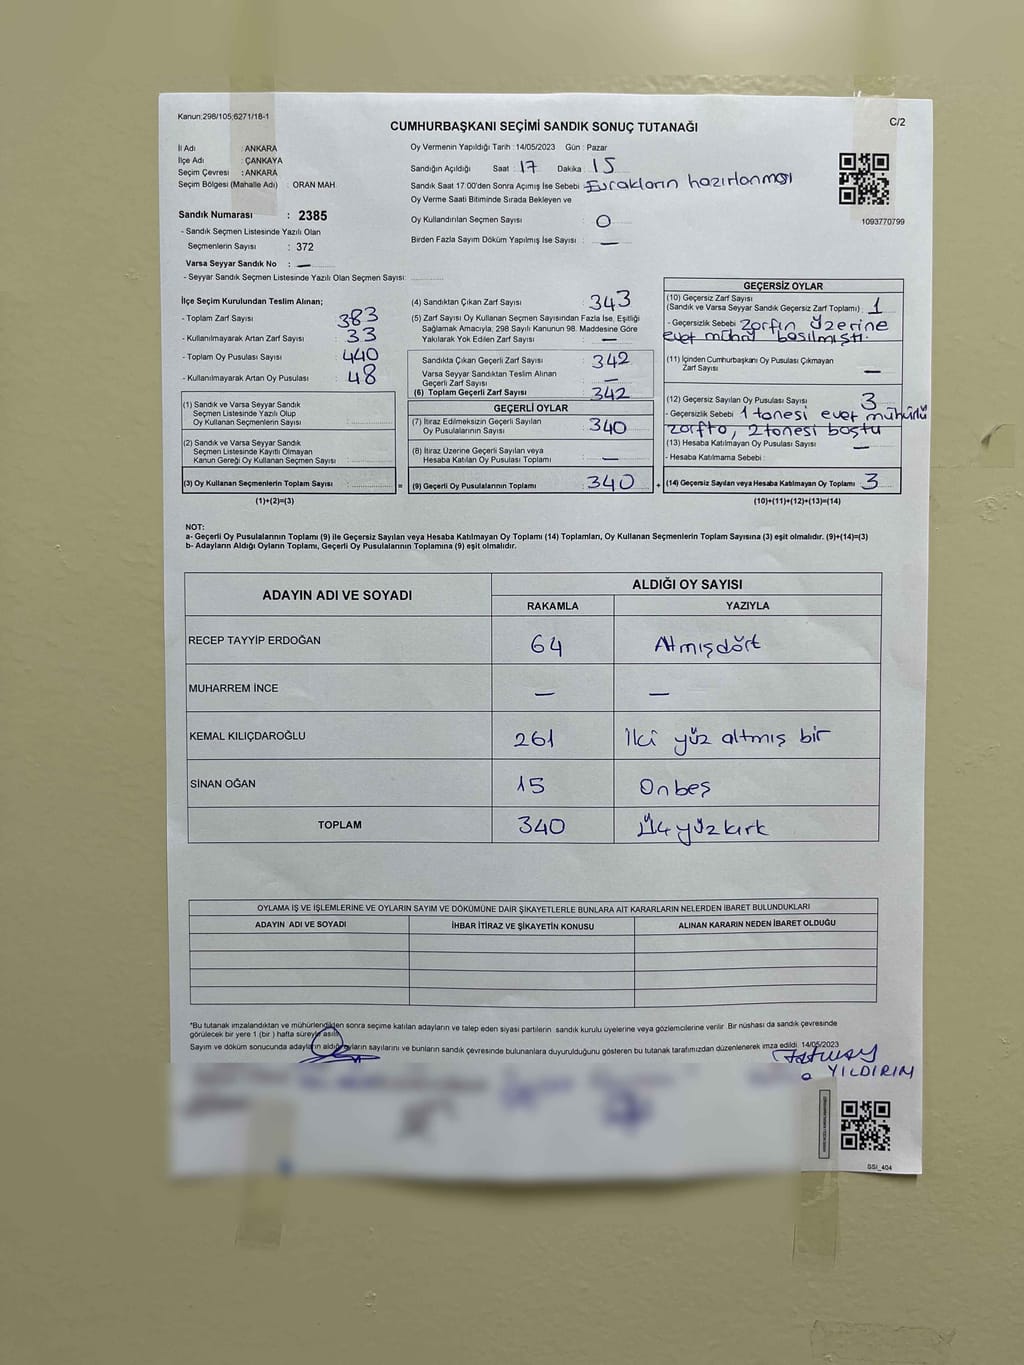 Kanun:298/105;6271/18-1
C/2
CUMHURBAŞKANI SEÇİMİ SANDIK SONUÇ TUTANAĞI
İl Adı : ANKARA
İlçe Adı : ÇANKAYA
Seçim Çevresi : ANKARA
Seçim Bölgesi (Mahalle Adı) : ORAN MAH.
Sandık Numarası : 2385
- Sandık Seçmen Listesinde Yazılı Olan
Seçmenlerin Sayısı : 372
Varsa Seyyar Sandık No : —
- Seyyar Sandık Seçmen Listesinde Yazılı Olan Seçmen Sayısı: ............
Oy Vermenin Yapıldığı Tarih : 14/05/2023 Gün : Pazar
Sandığın Açıldığı Saat : 17 Dakika : 15
Sandık Saat 17.00'den Sonra Açımış İse Sebebi : Evrakların hazırlanması
Oy Verme Saati Bitiminde Sırada Bekleyen ve
Oy Kullandırılan Seçmen Sayısı : 0
Birden Fazla Sayım Döküm Yapılmış İse Sayısı : —
1093770799
İlçe Seçim Kurulundan Teslim Alınan;
- Toplam Zarf Sayısı : 383
- Kullanılmayarak Artan Zarf Sayısı : 33
- Toplam Oy Pusulası Sayısı : 440
- Kullanılmayarak Artan Oy Pusulası : 48
(1) Sandık ve Varsa Seyyar Sandık
Seçmen Listesinde Yazılı Olup
Oy Kullanan Seçmenlerin Sayısı : ............
(2) Sandık ve Varsa Seyyar Sandık
Seçmen Listesinde Kayıtlı Olmayan
Kanun Gereği Oy Kullanan Seçmen Sayısı : ............
(3) Oy Kullanan Seçmenlerin Toplam Sayısı : ............
(1)+(2)=(3)
=
(4) Sandıktan Çıkan Zarf Sayısı : 343
(5) Zarf Sayısı Oy Kullanan Seçmen Sayısından Fazla İse, Eşitliği
Sağlamak Amacıyla, 298 Sayılı Kanunun 98. Maddesine Göre
Yakılarak Yok Edilen Zarf Sayısı : —
Sandıkta Çıkan Geçerli Zarf Sayısı : 342
Varsa Seyyar Sandıktan Teslim Alınan
Geçerli Zarf Sayısı : —
(6) Toplam Geçerli Zarf Sayısı : 342
GEÇERLİ OYLAR
(7) İtiraz Edilmeksizin Geçerli Sayılan
Oy Pusulalarının Sayısı : 340
(8) İtiraz Üzerine Geçerli Sayılan veya
Hesaba Katılan Oy Pusulası Toplamı : —
(9) Geçerli Oy Pusulalarının Toplamı : 340
+
GEÇERSİZ OYLAR
(10) Geçersiz Zarf Sayısı
(Sandık ve Varsa Seyyar Sandık Geçersiz Zarf Toplamı) : 1
- Geçersizlik Sebebi : Zarfın üzerine
evet mührü basılmıştı.
(11) İçinden Cumhurbaşkanı Oy Pusulası Çıkmayan
Zarf Sayısı : —
(12) Geçersiz Sayılan Oy Pusulası Sayısı : 3
- Geçersizlik Sebebi : 1 tanesi evet mühürlü
zarfta, 2 tanesi boştu
(13) Hesaba Katılmayan Oy Pusulası Sayısı : —
- Hesaba Katılmama Sebebi :
(14) Geçersiz Sayılan veya Hesaba Katılmayan Oy Toplamı : 3
(10)+(11)+(12)+(13)=(14)
NOT:
a- Geçerli Oy Pusulalarının Toplamı (9) ile Geçersiz Sayılan veya Hesaba Katılmayan Oy Toplamı (14) Toplamları, Oy Kullanan Seçmenlerin Toplam Sayısına (3) eşit olmalıdır. (9)+(14)=(3)
b- Adayların Aldığı Oyların Toplamı, Geçerli Oy Pusulalarının Toplamına (9) eşit olmalıdır.
ADAYIN ADI VE SOYADI
ALDIĞI OY SAYISI
RAKAMLA YAZIYLA
RECEP TAYYİP ERDOĞAN 64 Altmışdört
MUHARREM İNCE — —
KEMAL KILIÇDAROĞLU 261 İki yüz altmış bir
SİNAN OĞAN 15 Onbeş
TOPLAM 340 Üçyüzkırk
OYLAMA İŞ VE İŞLEMLERİNE VE OYLARIN SAYIM VE DÖKÜMÜNE DAİR ŞİKAYETLERLE BUNLARA AİT KARARLARIN NELERDEN İBARET BULUNDUKLARI
ADAYIN ADI VE SOYADI İHBAR İTİRAZ VE ŞİKAYETİN KONUSU ALINAN KARARIN NEDEN İBARET OLDUĞU
*Bu tutanak imzalandıktan ve mühürlendikten sonra seçime katılan adayların ve talep eden siyasi partilerin sandık kurulu üyelerine veya gözlemcilerine verilir. Bir nüshası da sandık çevresinde
görülecek bir yere 1 (bir) hafta süreyle asılır.
Sayım ve döküm sonucunda adayların aldığı oyların sayılarını ve bunların sandık çevresinde bulunanlara duyurulduğunu gösteren bu tutanak tarafımızdan düzenlenerek imza edildi. 14/05/2023
YILDIRIM
SSI_404